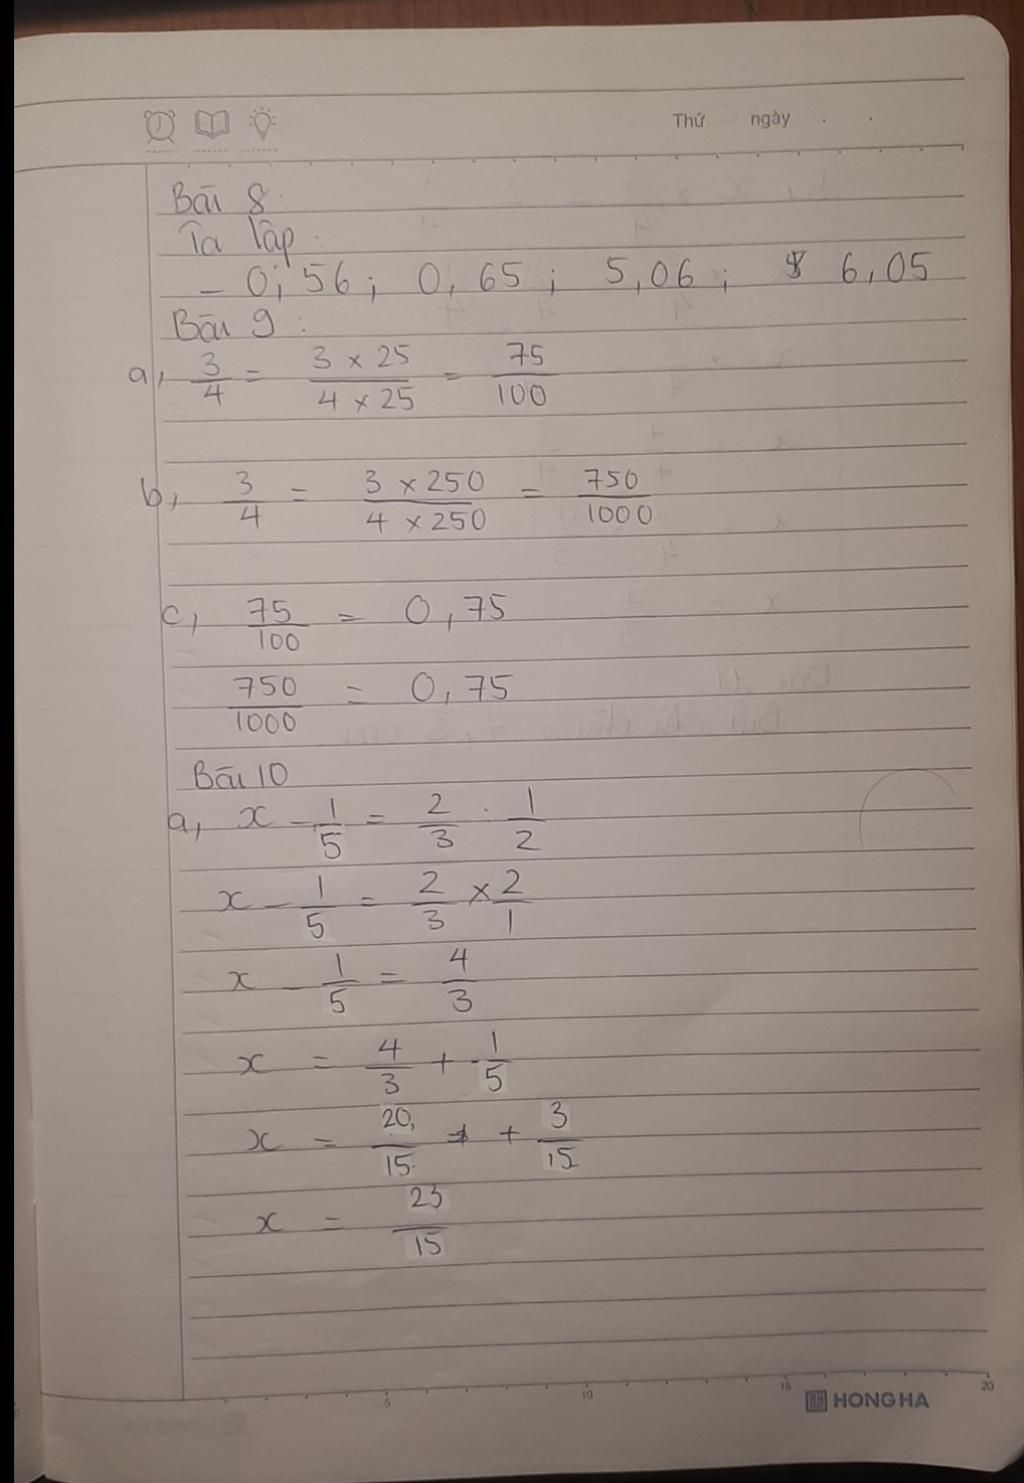 Thứ ngày . .
Bài 8:
Ta lập:
- 0,56; 0,65; 5,06; 6,05
Bài 9:
a, 3/4 = (3 × 25)/(4 × 25) = 75/100
b, 3/4 = (3 × 250)/(4 × 250) = 750/1000
c, 75/100 = 0,75
750/1000 = 0,75
Bài 10
a, x - 1/5 = 2/3 : 1/2
x - 1/5 = 2/3 × 2/1
x - 1/5 = 4/3
x = 4/3 + 1/5
x = 20/15 + 3/15
x = 23/15
5 10 15 20
HONG HA